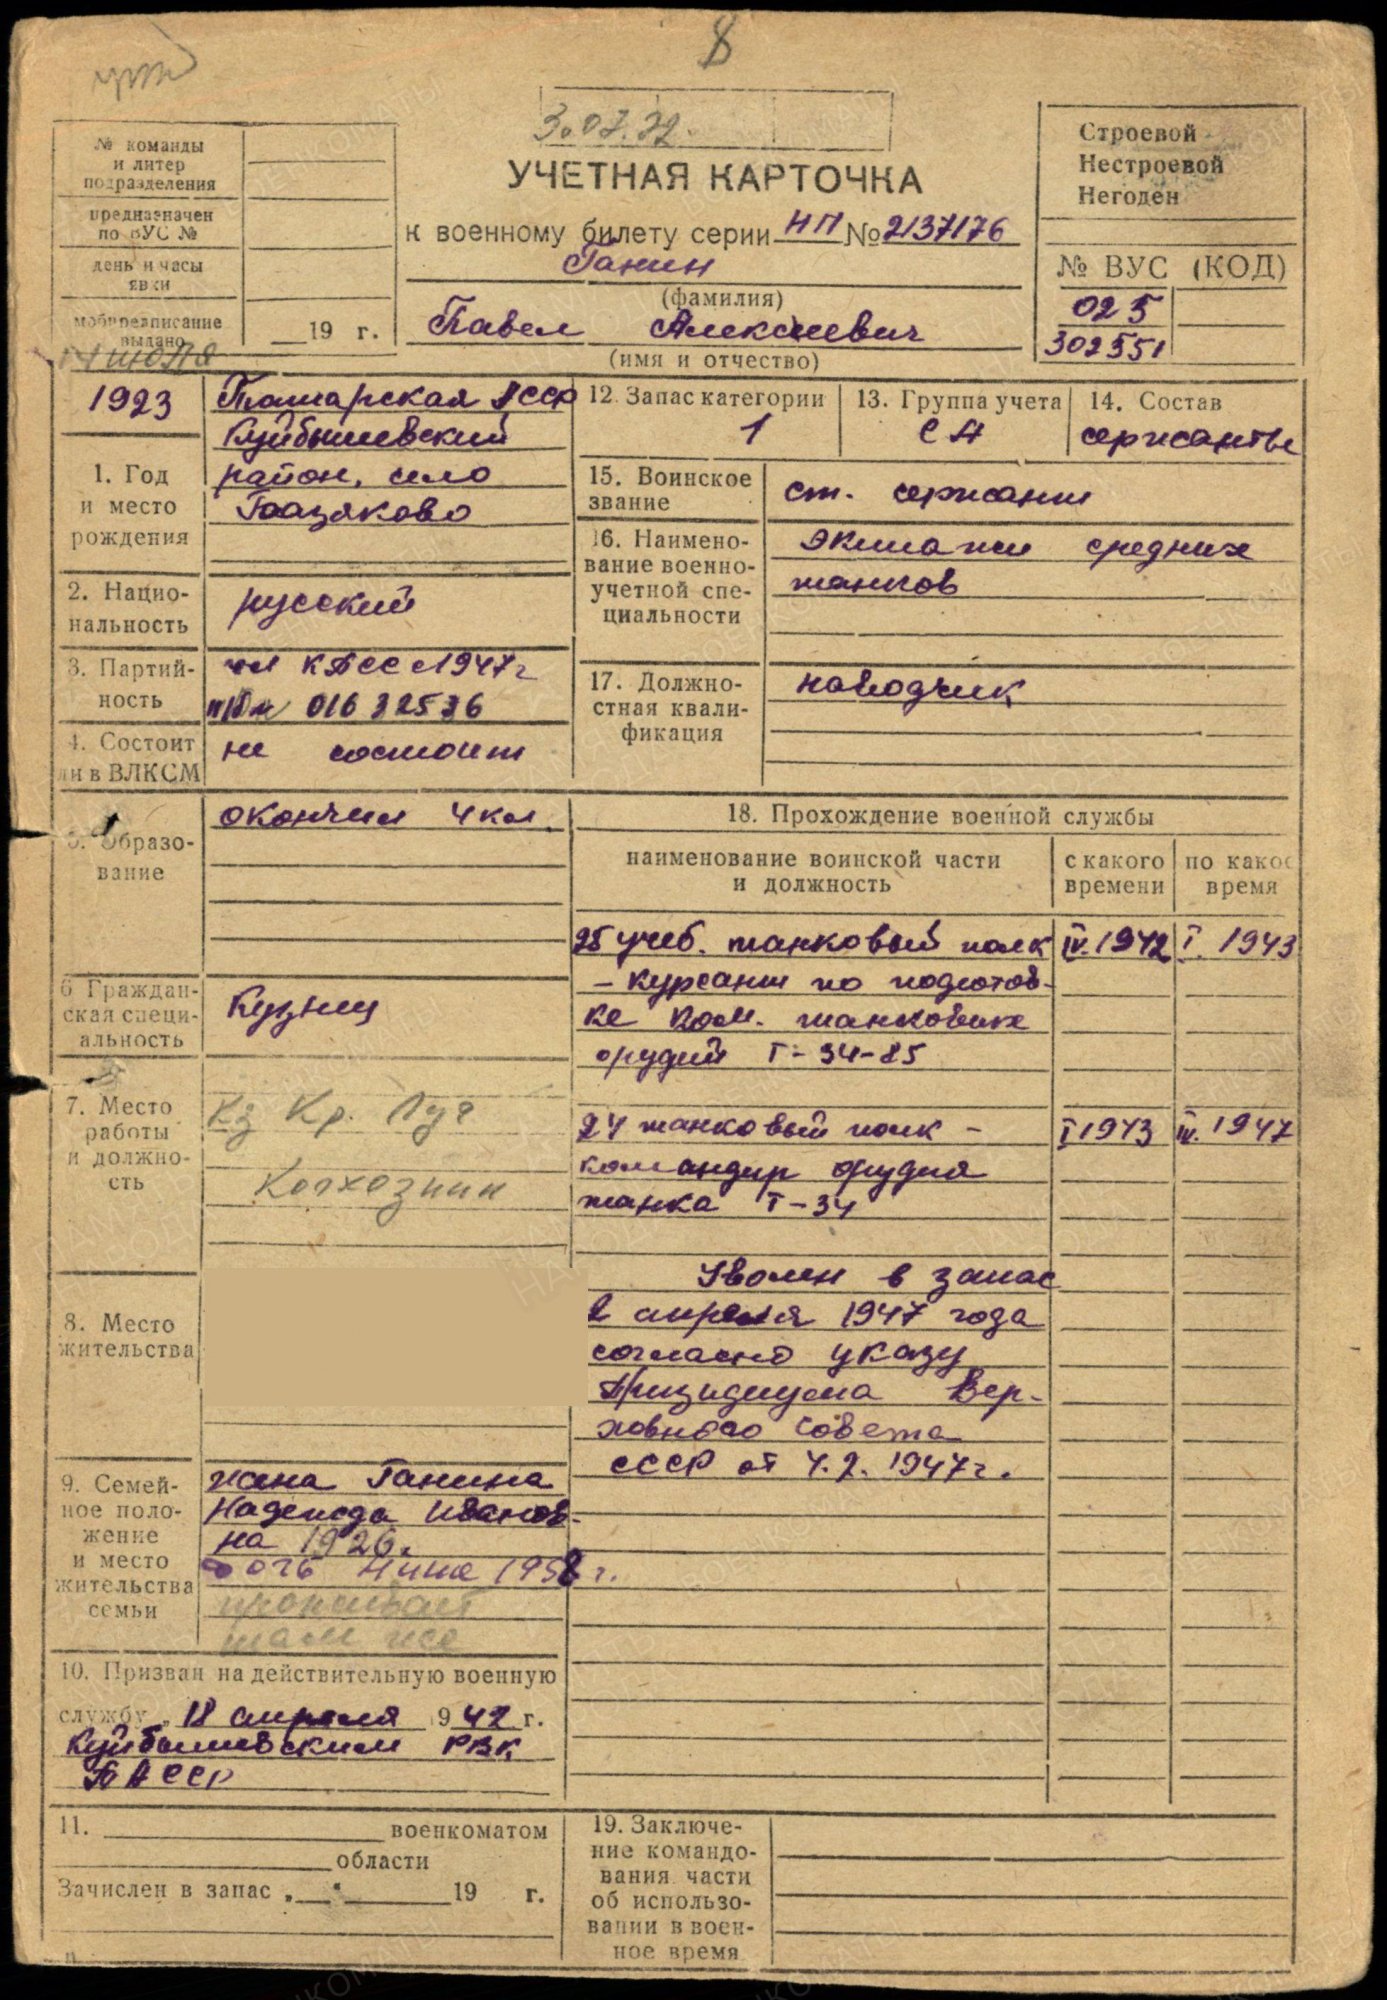 8
3.07.72.
№ команды
и литер
подразделения
предназначен
по ВУС №
день и часы
явки
мобпредписание
выдано
19 г.
УЧЕТНАЯ КАРТОЧКА
к военному билету серии НП № 2137176
Ганин
(фамилия)
Павел Алексеевич
(имя и отчество)
Строевой
Нестроевой
Негоден
№ ВУС (КОД)
025
302551
14 июля
1923
1. Год
и место
рождения
Татарская АССР
Куйбышевский
район, село
2. Нацио-
нальность
русский
3. Партий-
ность
чл КПСС с 1947 г
п/б № 01632536
4. Состоит
ли в ВЛКСМ
не состоит
5. Образо-
вание
окончил 4 кл.
6 Граждан-
ская специ-
альность
Кузнец
7. Место
работы
и должно-
сть
Кз Кр. Луч
Колхозник
8. Место
жительства
9. Семей-
ное поло-
жение
и место
жительства
семьи
жена Ганина
Надежда Иванов-
на 1926.
дочь Нина 1958 г.
проживает
там же
10. Призван на действительную военную
службу „ 18 апреля 1942 г.
Куйбышевским РВК
ТАССР
11. военкоматом
области
Зачислен в запас „ “ 19 г.
12. Запас категории
1
13. Группа учета
СА
14. Состав
сержанты
15. Воинское
звание
ст. сержант
16. Наимено-
вание военно-
учетной спе-
циальности
экипажи средних
танков
17. Должно-
стная квали-
фикация
наводчик
18. Прохождение военной службы
наименование воинской части
и должность
с какого
времени
по какое
время
25 учеб. танковый полк IV.1942 I. 1943
- курсант по подготов-
ке ком. танковых
орудий Т-34-85
24 танковый полк - I 1943 IV. 1947
командир орудия
танка Т-34
Уволен в запас
2 апреля 1947 года
согласно указу
Призидиума Вер-
ховного Совета
СССР от 4.2.1947 г.
19. Заключе-
ние командо-
вания части
об использо-
вании в воен-
ное время